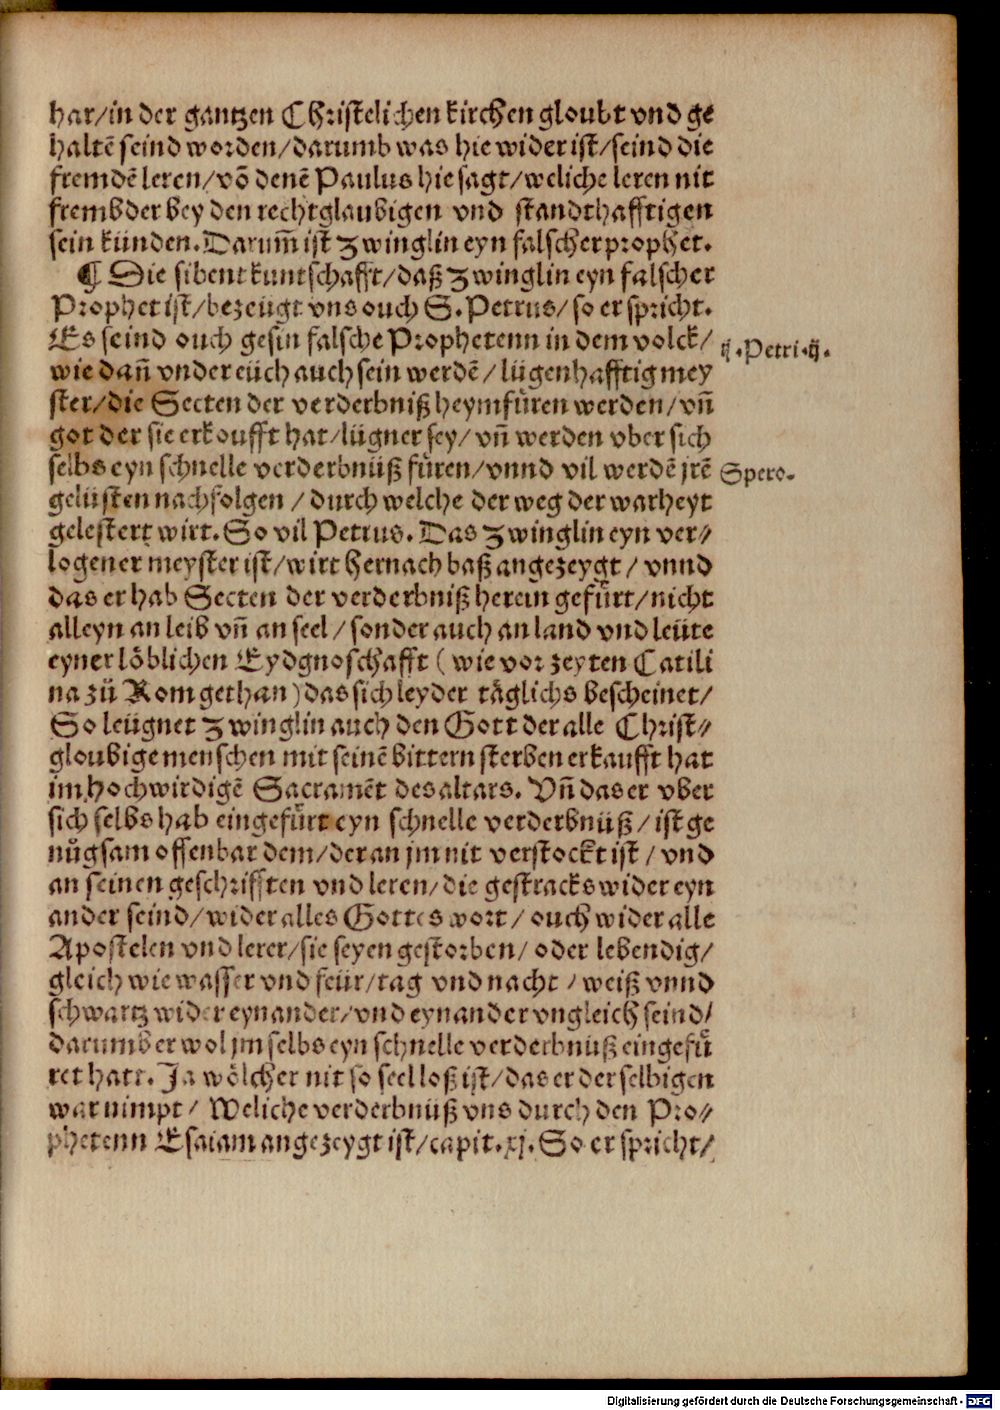 har/in der gantzen Christelichen kirchen gloubt vnd ge
haltē seind worden/darumb was hie wider ist/seind die
fremdē leren/vō denē Paulus hie sagt/weliche leren nit
frembder bey den rechtglaubigen vnd standthafftigen
sein künden. Darum̄ ist Zwinglin eyn falscher prophet.
¶ Die sibent kuntschafft/daß Zwinglin eyn falscher
Prophet ist/bezeügt vns ouch S. Petrus/so er spricht.
Es seind ouch gesin falsche Prophetenn in dem volck/
ij. Petri. ij.
wie dan̄ vnder eüch auch sein werdē/lügenhafftig mey
ster/die Secten der verderbniß heymfüren werden/vn̄
got der sie erkoufft hat/lügner sey/vn̄ werden vber sich
selbs eyn schnelle verderbnüß füren/vnnd vil werdē jrē
Spero.
gelüsten nachfolgen/durch welche der weg der warheyt
gelestert wirt. So vil Petrus. Das Zwinglin eyn ver⸗
logener meyster ist/wirt hernach baß angezeygt/vnnd
das er hab Secten der verderbniß herein gefürt/nicht
alleyn an leib vn̄ an seel/sonder auch an land vnd leüte
eyner löblichen Eydgnoschafft (wie vor zeyten Catili
na zů Rom gethan) das sich leyder täglichs bescheinet/
So leügnet Zwinglin auch den Gott der alle Christ⸗
gloubige menschen mit seinē bittern sterben erkaufft hat
im hochwirdigē Sacramēt des altars. Vn̄ das er vber
sich selbs hab eingefürt eyn schnelle verderbnüß/ist ge
nůgsam offenbar dem/der an jm nit verstockt ist/vnd
an seinen geschrifften vnd leren/die gestracks wider eyn
ander seind/wider alles Gottes wort/ouch wider alle
Apostelen vnd lerer/sie seyen gestorben/oder lebendig/
gleich wie wasser vnd feür/tag vnd nacht/weiß vnnd
schwartz wider eynander/vnd eynander vngleich seind/
darumb er wol jm selbs eyn schnelle verderbnüß eingefü
ret hatt. Ja wölcher nit so seelloß ist/das er der selbigen
war nimpt/Weliche verderbnüß vns durch den Pro⸗
phetenn Esaiam angezeygt ist/capit. xj. So er spricht/
Digitalisierung gefördert durch die Deutsche Forschungsgemeinschaft - DFG